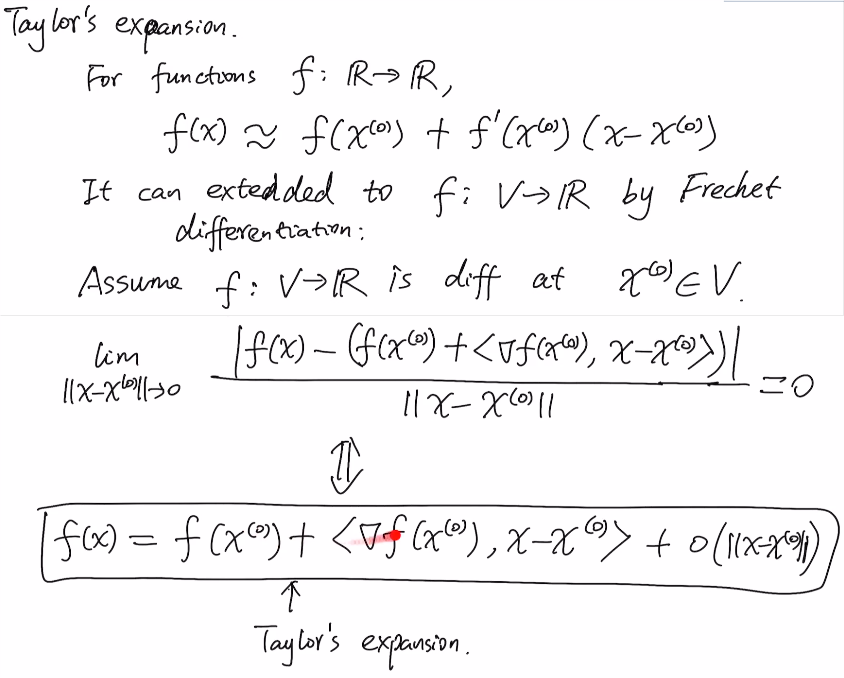 Taylor's expansion.
For functions f: ℝ→ℝ,
f(x) ≈ f(x⁽⁰⁾) + f'(x⁽⁰⁾) (x-x⁽⁰⁾)
It can extedded to f: V→ℝ by Frechet
differentiation:
Assume f: V→ℝ is diff at x⁽⁰⁾∈V.
lim |f(x) - (f(x⁽⁰⁾) + <∇f(x⁽⁰⁾), x-x⁽⁰⁾>)|
||x-x⁽⁰⁾||→0 ||x-x⁽⁰⁾|| =0
⇕
f(x) = f(x⁽⁰⁾) + <∇f(x⁽⁰⁾), x-x⁽⁰⁾> + o(||x-x⁽⁰⁾||)
↑
Taylor's expansion.